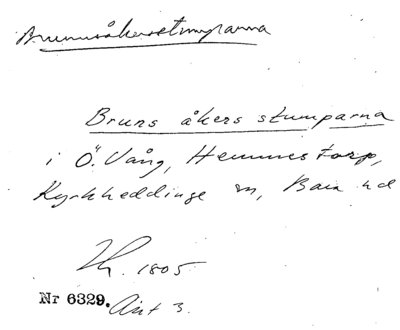 Brunnsåkerstumparna
Bruns åkers stumparna
i Ö. Vång, Hemmestorp,
Kyrkheddinge sn, Bara hd
1805
Nr 6329. Akt 3.